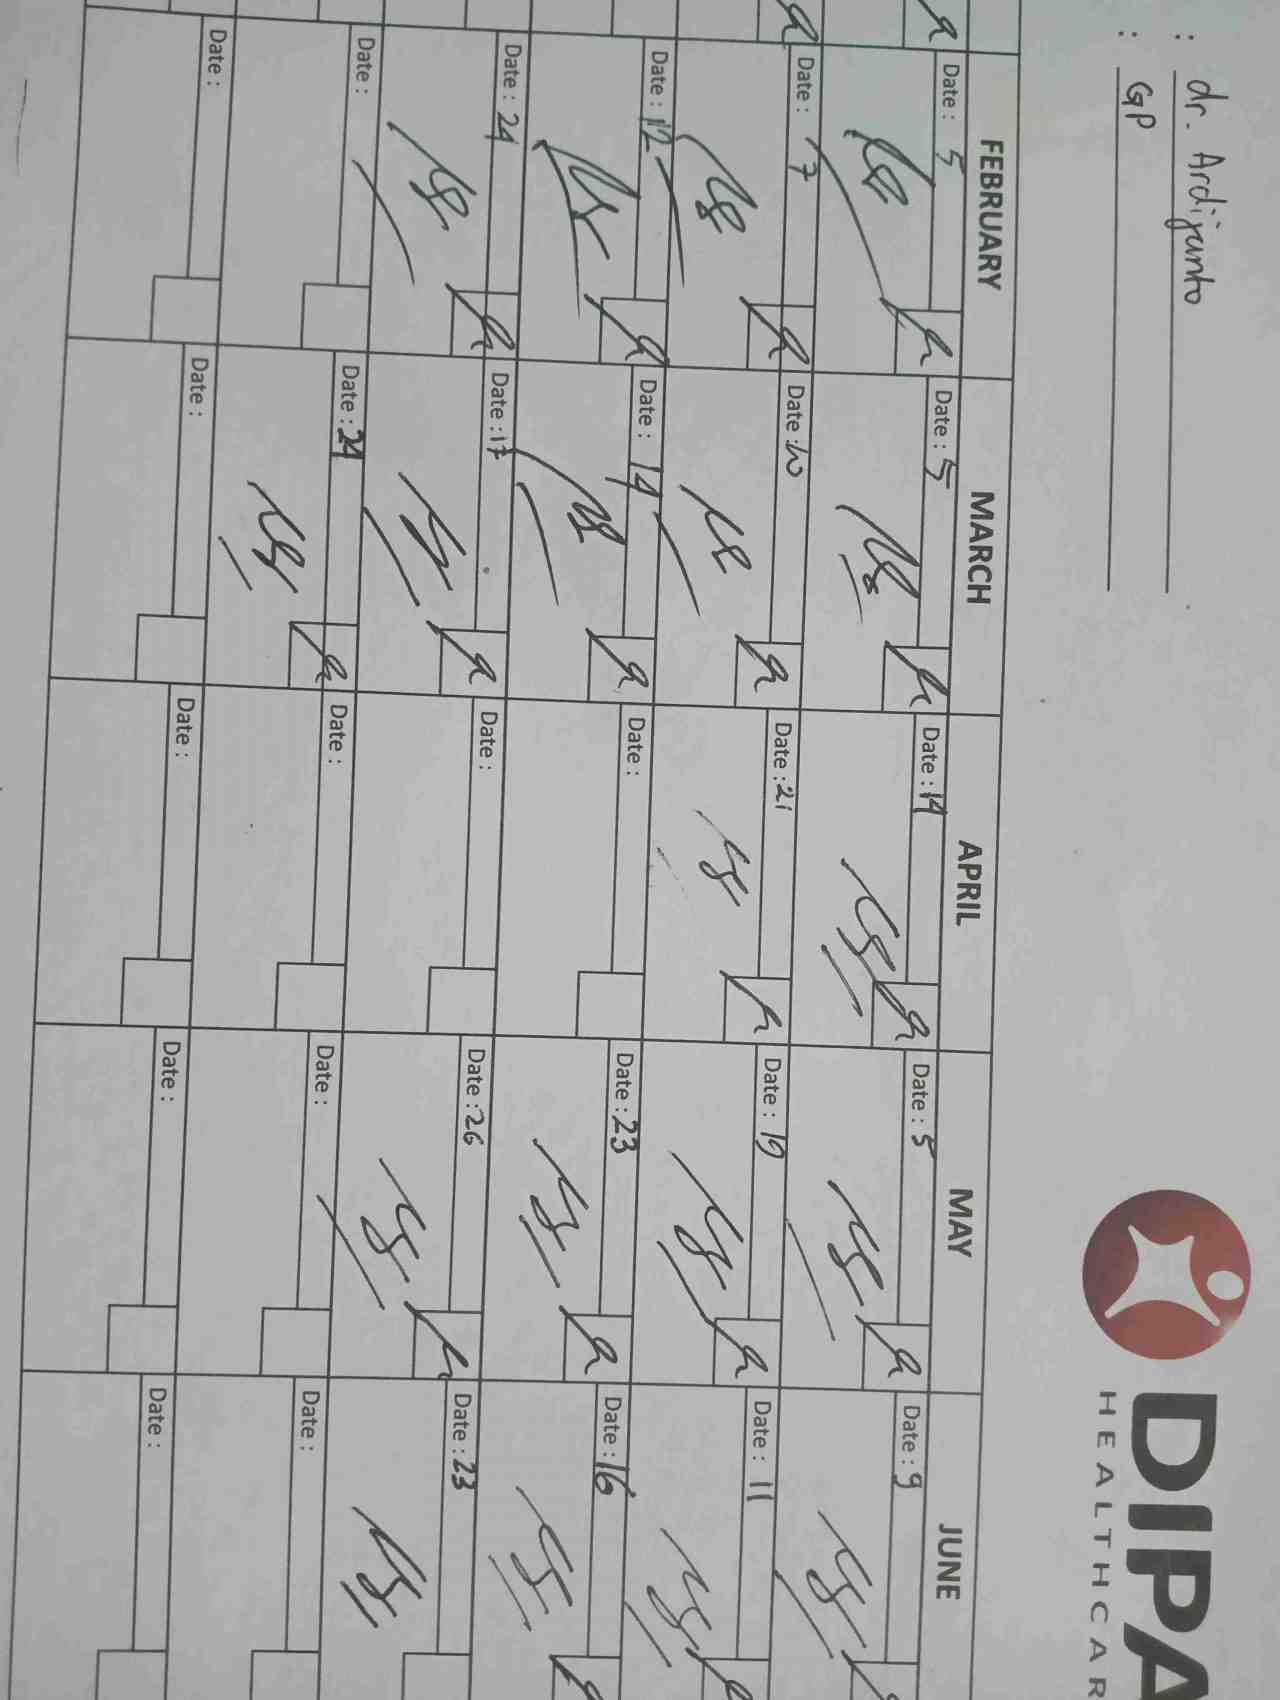 : dr. Ardijanto
: GP
DIPA
HEALTHCAR
FEBRUARY MARCH APRIL MAY JUNE
Date : 5 Date : 5 Date : 14 Date : 5 Date : 9
Date : 7 Date : 10 Date : 21 Date : 19 Date : 11
Date : 12 Date : 14 Date : Date : 23 Date : 16
Date : 24 Date : 17 Date : Date : 26 Date : 23
Date : Date : 24 Date : Date : Date :
Date : Date : Date : Date : Date :